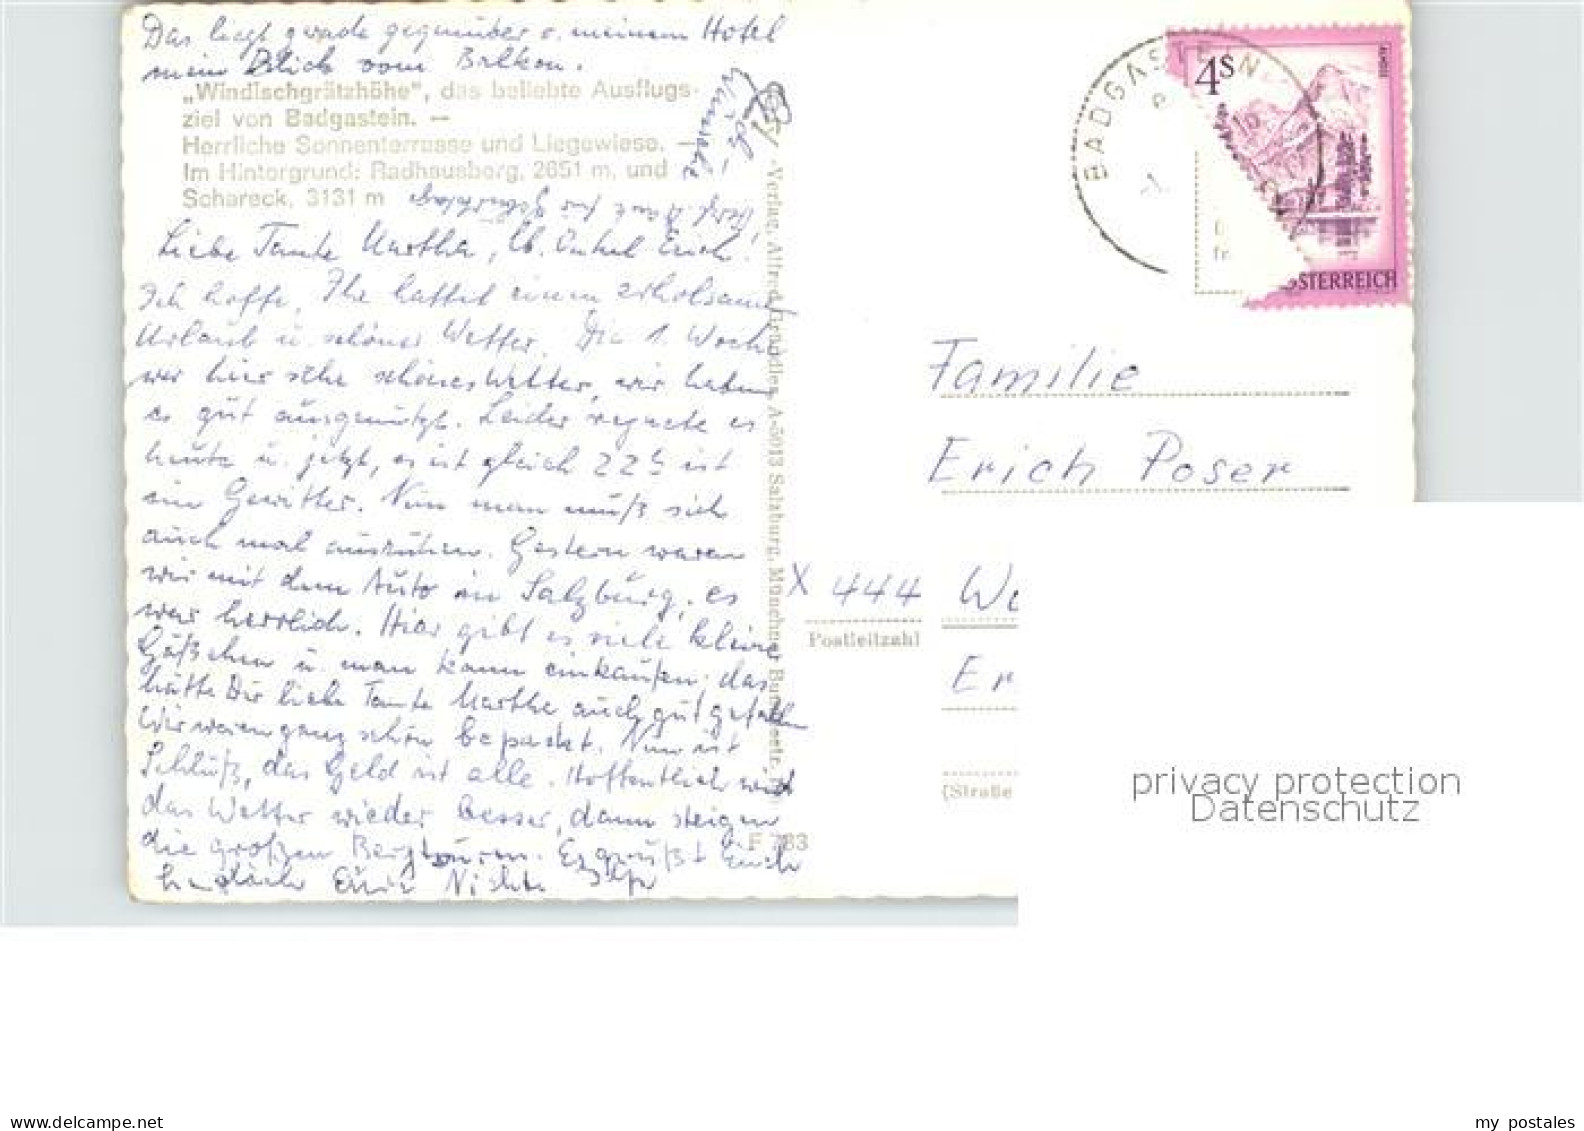 Das liegt gerade gegenüber v. meinem Hotel
mein Blick vom Balkon.
„Windischgrätzhöhe", das beliebte Ausflugs-
ziel von Badgastein. —
Herrliche Sonnenterrasse und Liegewiese. —
Im Hintergrund: Radhausberg, 2651 m, und
Schareck, 3131 m
Liebe Tante Martha, lb. Onkel Erich!
Ich hoffe, Ihr hattet einen erholsamen
Urlaub u. schönes Wetter. Die 1. Woche
war hier sehr schönes Wetter, wir haben
es gut ausgenützt. Leider regnete es
heute u. jetzt, es ist gleich 22 h ist
ein Gewitter. Nun man muß sich
auch mal ausruhen. Gestern waren
wir mit dem Auto in Salzburg, es
war herrlich. Hier gibt es viele kleine
Gäßchen u. man kann einkaufen, das
hätte Dir liebe Tante Martha auch gut gefallen
Wir waren ganz schön bepackt. Nun ist
Schluß, das Geld ist alle. Hoffentlich wird
das Wetter wieder besser, dann steigen
die großen Bergtouren. Es grüßt Euch
herzlich Eure Nichte
-Verlag, Alfred Gründler, A-5013 Salzburg, Münchner Bundesstr.
F 783
BADGASTEIN
4S
ÖSTERREICH
Familie
Erich Poser
X 444 We
Postleitzahl
Er
(Straße
privacy protection
Datenschutz
www.delcampe.net
my postales